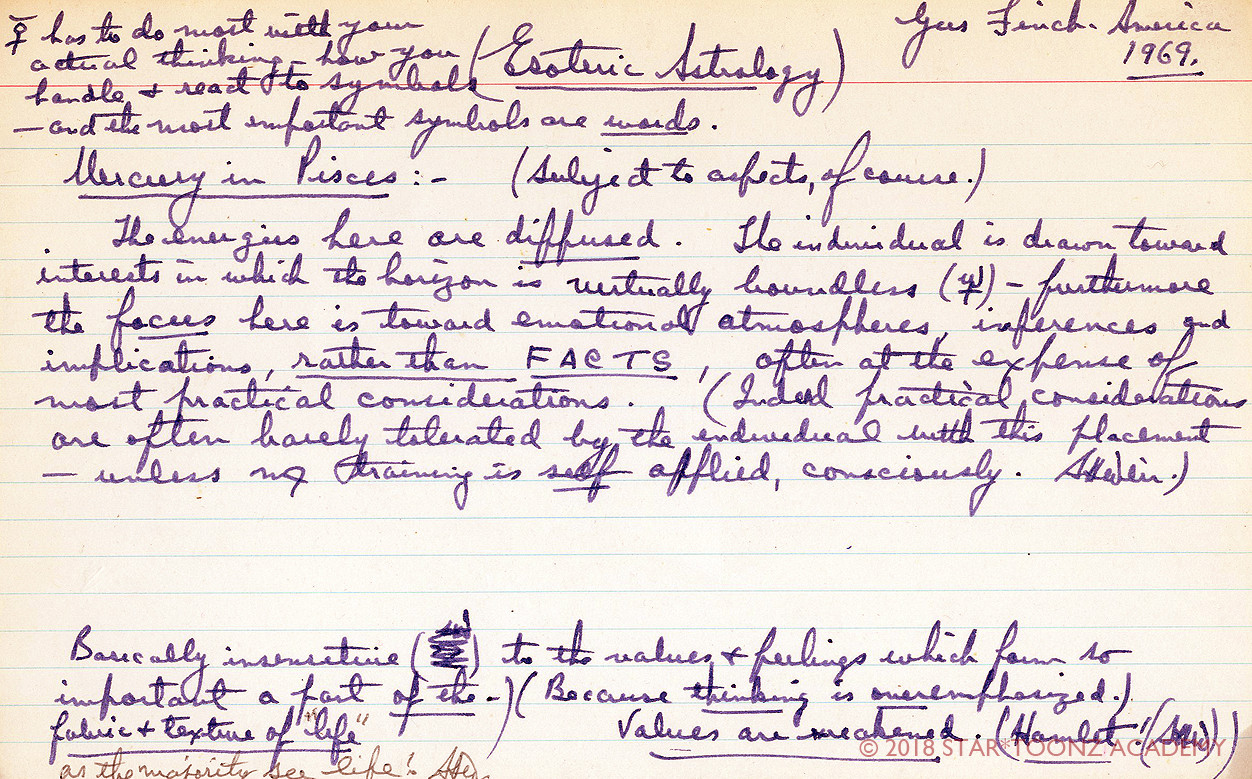 ☿ has to do most with your
actual thinking - how you
handle & react to symbols
— and the most important symbols are words.
(Esoteric Astrology)
Gus Finch - America
1969.
Mercury in Pisces :- (Subject to aspects, of course.)
The energies here are diffused. The individual is drawn toward
interests in which the horizon is virtually boundless (♆) - furthermore
the focus here is toward emotional atmospheres, inferences and
implications, rather than FACTS, often at the expense of
most practical considerations. (Indeed practical considerations
are often barely tolerated by the individual with this placement
— unless training is self applied, consciously.
Basically insensitive ( ) to the values & feelings which form so
important a part of the -) (Because thinking is overemphasized.)
fabric & texture of "life" Values are weakened. (Hamlet
as the majority see life!
© 2018 STAR*TOONZ ACADEMY